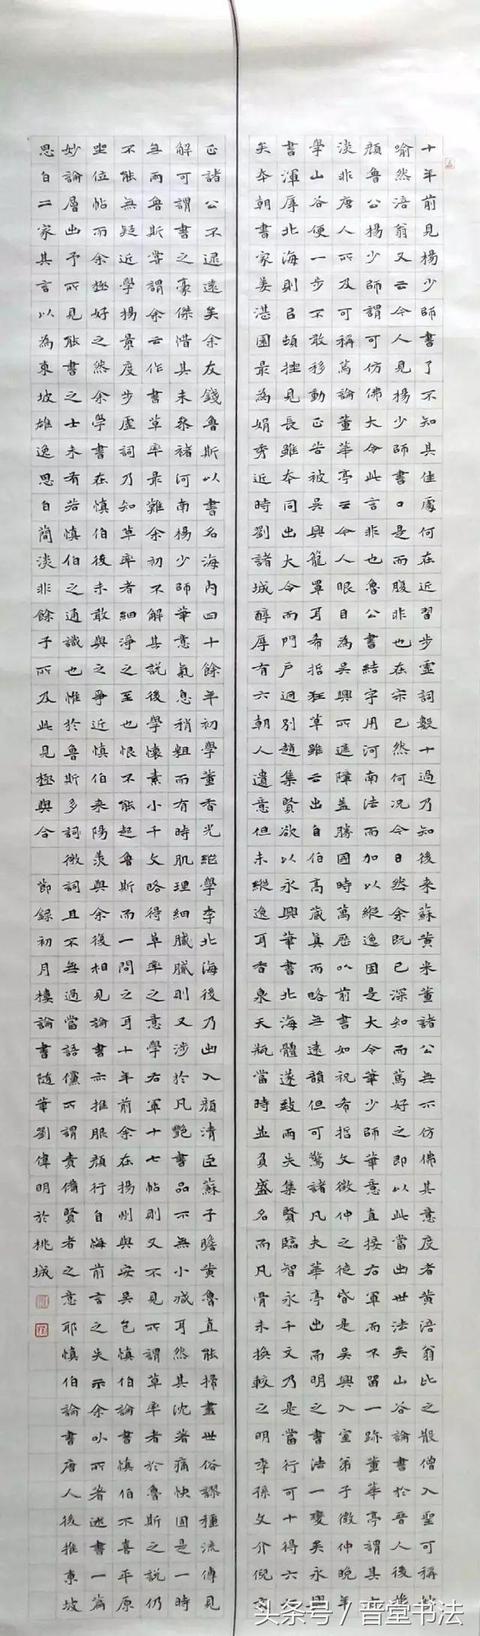 十年前見楊少師書了不知其佳處何在近習步虛詞數十過乃知後來蘇黃米董諸公無不仿佛其意度者黃涪翁比之散僧入聖可稱妙
喻然涪翁又云今人見楊少師書口是而腹非也在宋已然何況今日然余既已深知而篤好之即以此當出世法矣山谷論書於晉人後推
顏魯公楊少師謂可仿佛大令此言非也魯公書結字用河南法而加以縱逸固是大令筆少師筆意直接右軍而不留一跡董華亭謂其古
淡非唐人所及可稱篤論董華亭云今人眼目為吳興所遮障蓋勝國時萬曆以前書如祝希哲文徵仲之徒皆是吳興入室弟子徵仲晚年
學山谷便一步不敢移動正苦被吳興籠罩耳希哲狂草雖云出自伯高藏真而略無遠韻但可驚諸凡夫華亭出而明之書法一變矣永興
書渾厚北海則以頓挫見長雖本同出大令而門戶迥別趙集賢欲以永興筆書北海體遂致兩失集賢臨智永千文乃是當行可十得六
矣本朝書家姜湛園最為娟秀近時劉諸城醇厚有六朝人遺意但未縱逸耳香泉天瓶當時並負盛名而凡骨未換較之明季孫文介倪文
正諸公不逮遠矣余友錢魯斯以書名海內四十餘年初學董香光繼學李北海後乃出入顏清臣蘇子瞻黃魯直能掃盡世俗謬種流傳見
解可謂書之豪傑惜其未參褚河南楊少師筆意氣息稍粗而有時肌理細膩膩則又涉於凡艷書品不無小減耳然其沈著痛快固是一時
無而魯斯嘗謂余云作書草率最難余初不解其說後學懷素小千文略得草率之意學右軍十七帖則又不見所謂草率者於魯斯之說仍
不能無疑近學楊景度步虛詞乃知草率者細淨之至也恨不能起魯斯而一問之耳十年前余在揚州與安吳包慎伯論書慎伯不喜平原
坐位帖而余極好之然余學書在慎伯後未敢與之爭近慎伯來陽羨與余後相見論書亦推服顏行自悔前言之失示余以所著述書一篇
妙論層出予所見能書之士未有若慎伯之通識也惟於魯斯多詞微詞且不無過當語儻所謂責備賢者之意耶慎伯論書唐人後推東坡
思白二家其言以為東坡雄逸思白簡淡非餘子所及此見極與余合 節錄初月樓論書隨筆劉偉明於桃城
头条号/晋堂书法